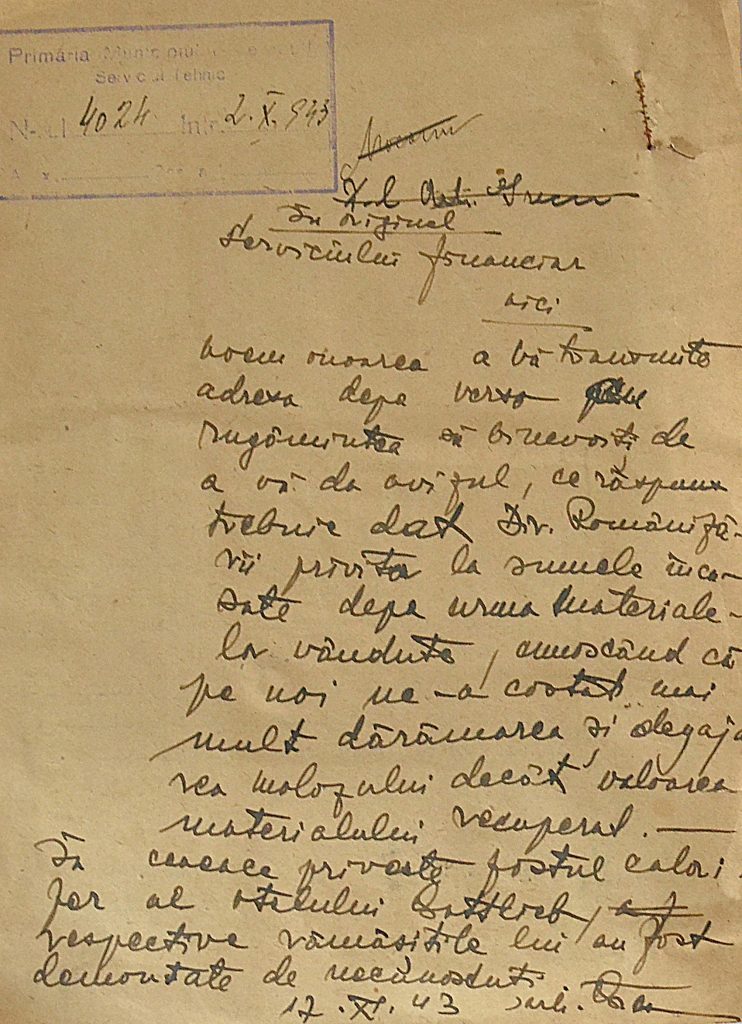 Primăria Municipiului
Serviciul Tehnic
4024 2.X.943
În original
Serviciului financiar
aici
avem onoarea a vă transmite
adresa depe verso
rugămintea să binevoiți de
a vă da avizul, ce răspuns
trebuie dat Div. Româniză-
rii privitor la sumele înca-
sate depe urma materiale-
lor vândute, cunoscând că
pe noi ne-a costat mai
mult dărâmarea și degaja
rea molozului decât valoarea
materialului recuperat. —
În ceeace privește fostul calori-
fer al otelului Gottlieb,
respective rămășițile lui au fost
demontate de necunoscuți.
17.XI.43